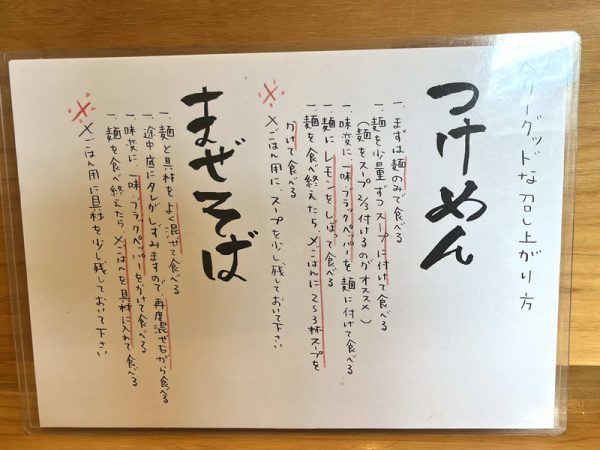 ベリーグッドな召し上がり方
つけめん
一、まずは麺のみで食べる
一、麺を少量ずつスープに付けて食べる
(麺をスープ2/3付けるのがオススメ)
一、味変に、一味、ブラックペッパーを麺に付けて食べる
一、麺にレモンをしぼって食べる
一、麺を食べ終えたら、〆ごはんに2〜3杯スープを
かけて食べる
※〆ごはん用に、スープを少し残しておいて下さい
まぜそば
一、麺と具材をよく混ぜて食べる
一、途中底にタレがしずみますので、再度混ぜながら食べる
一、味変に、一味、ブラックペッパーをかけて食べる
一、麺を食べ終えたら、〆ごはんを具材に入れて食べる
※〆ごはん用に具材を少し残しておいて下さい